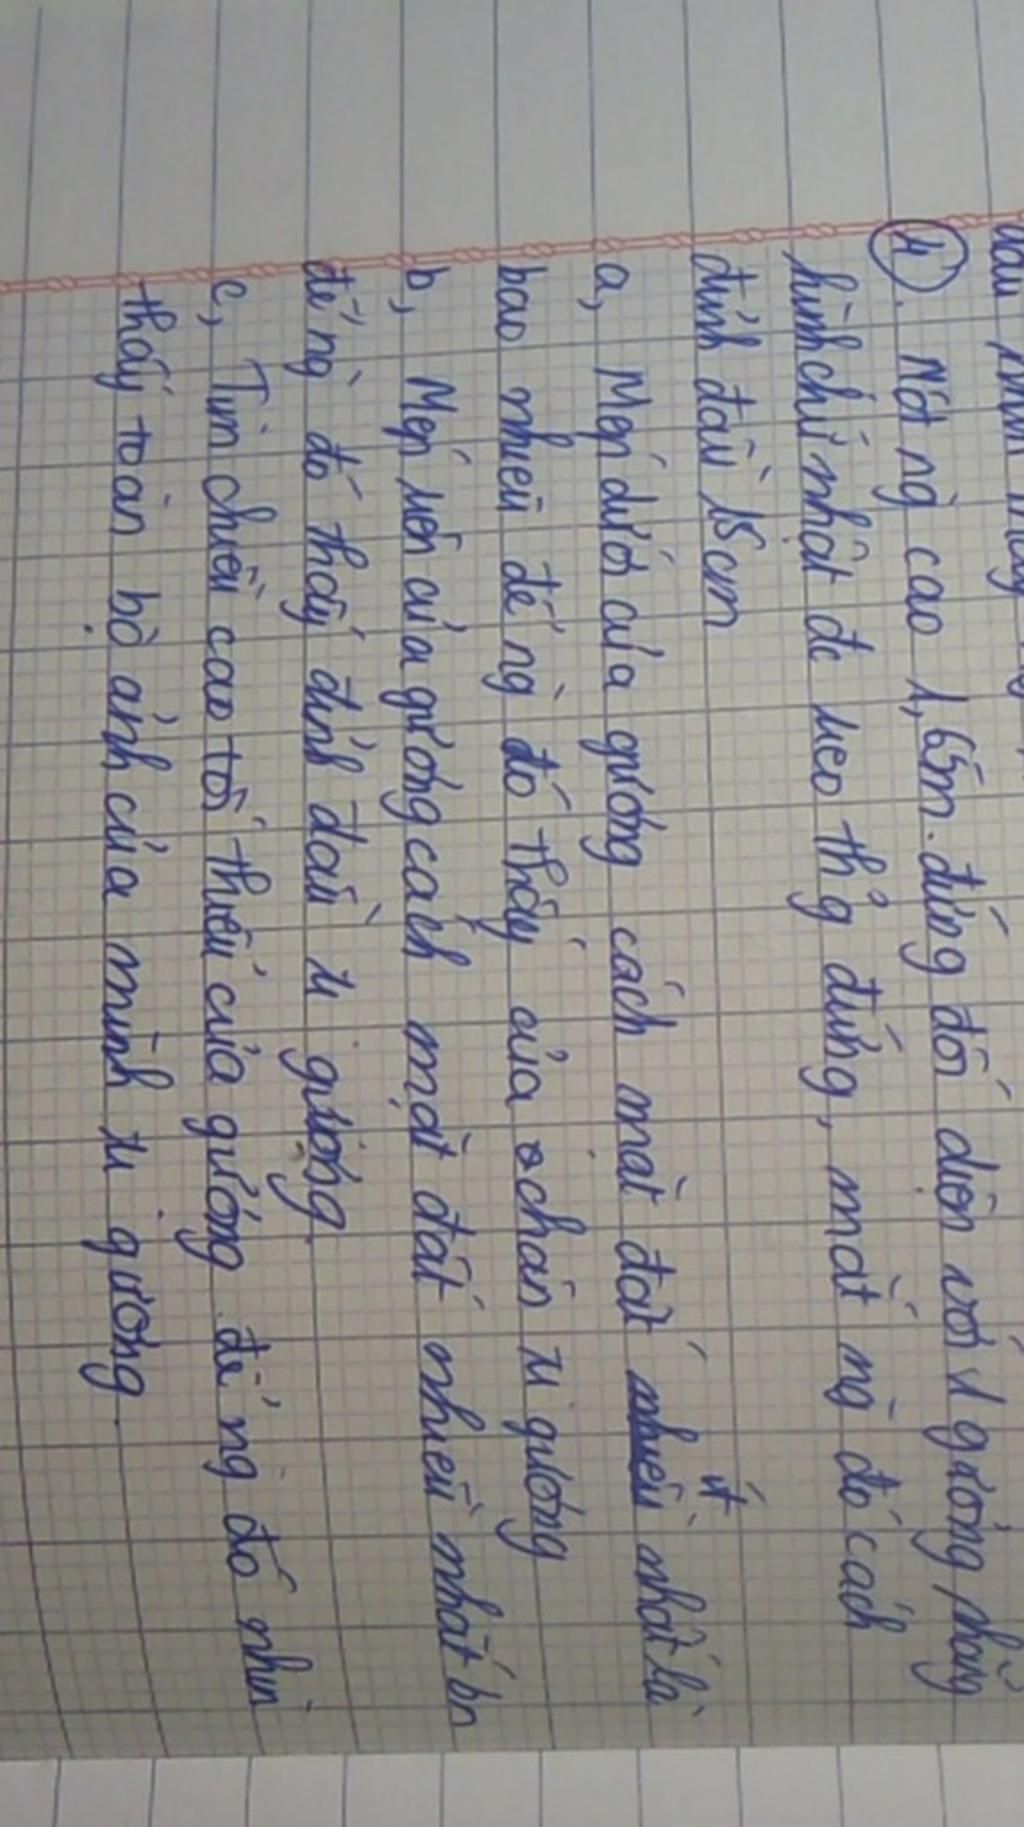 ④. Một ng cao 1,65m. đứng đối diện với 1 gương phẳng
hình chữ nhật đc treo thẳng đứng, mắt ng đó cách
đỉnh đầu 15cm
a, Mép dưới của gương cách mặt đất ít nhất là
bao nhiêu để ng đó thấy của chân tr gương
b, Mép trên của gương cách mặt đất nhiều nhất bn
để ng đó thấy đỉnh đầu tr gương.
c, Tìm chiều cao tối thiểu của gương để ng đó nhìn
thấy toàn bộ ảnh của mình tr gương.